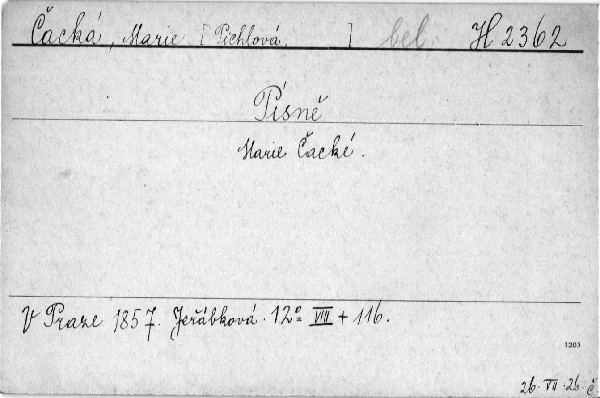 Čacká, Marie [Pichlová, ] bel. H 2362
Písně
Marie Čacké.
V Praze 1857. Jeřábková. 12° VIII + 116.
1205
26. VII. 26. Č